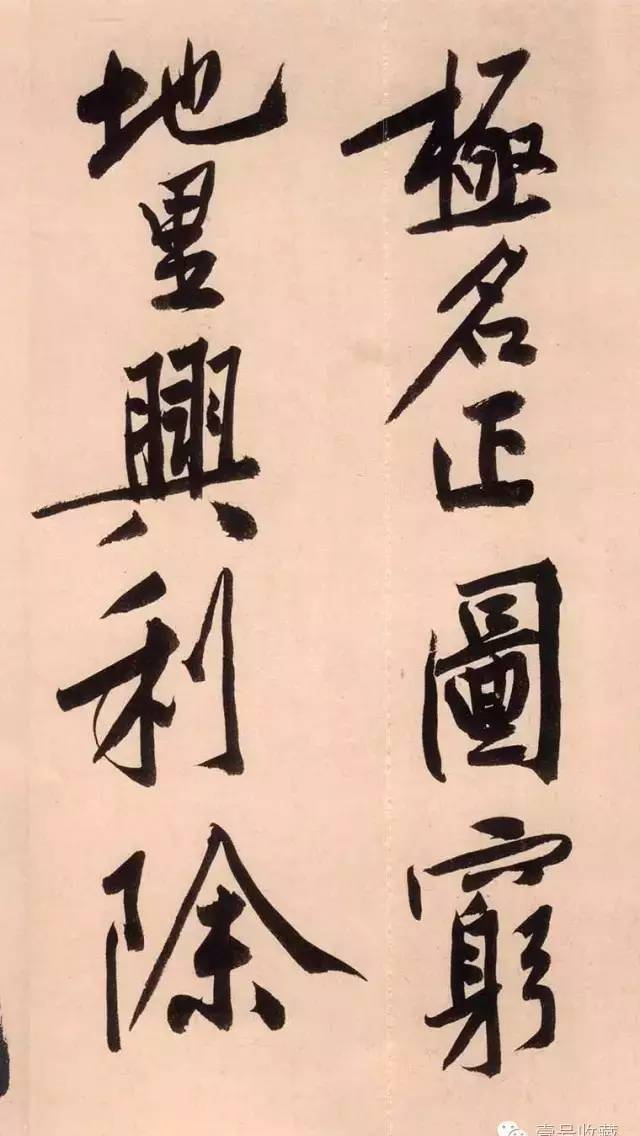 極名正圖窮
地里興利除
壹号收藏